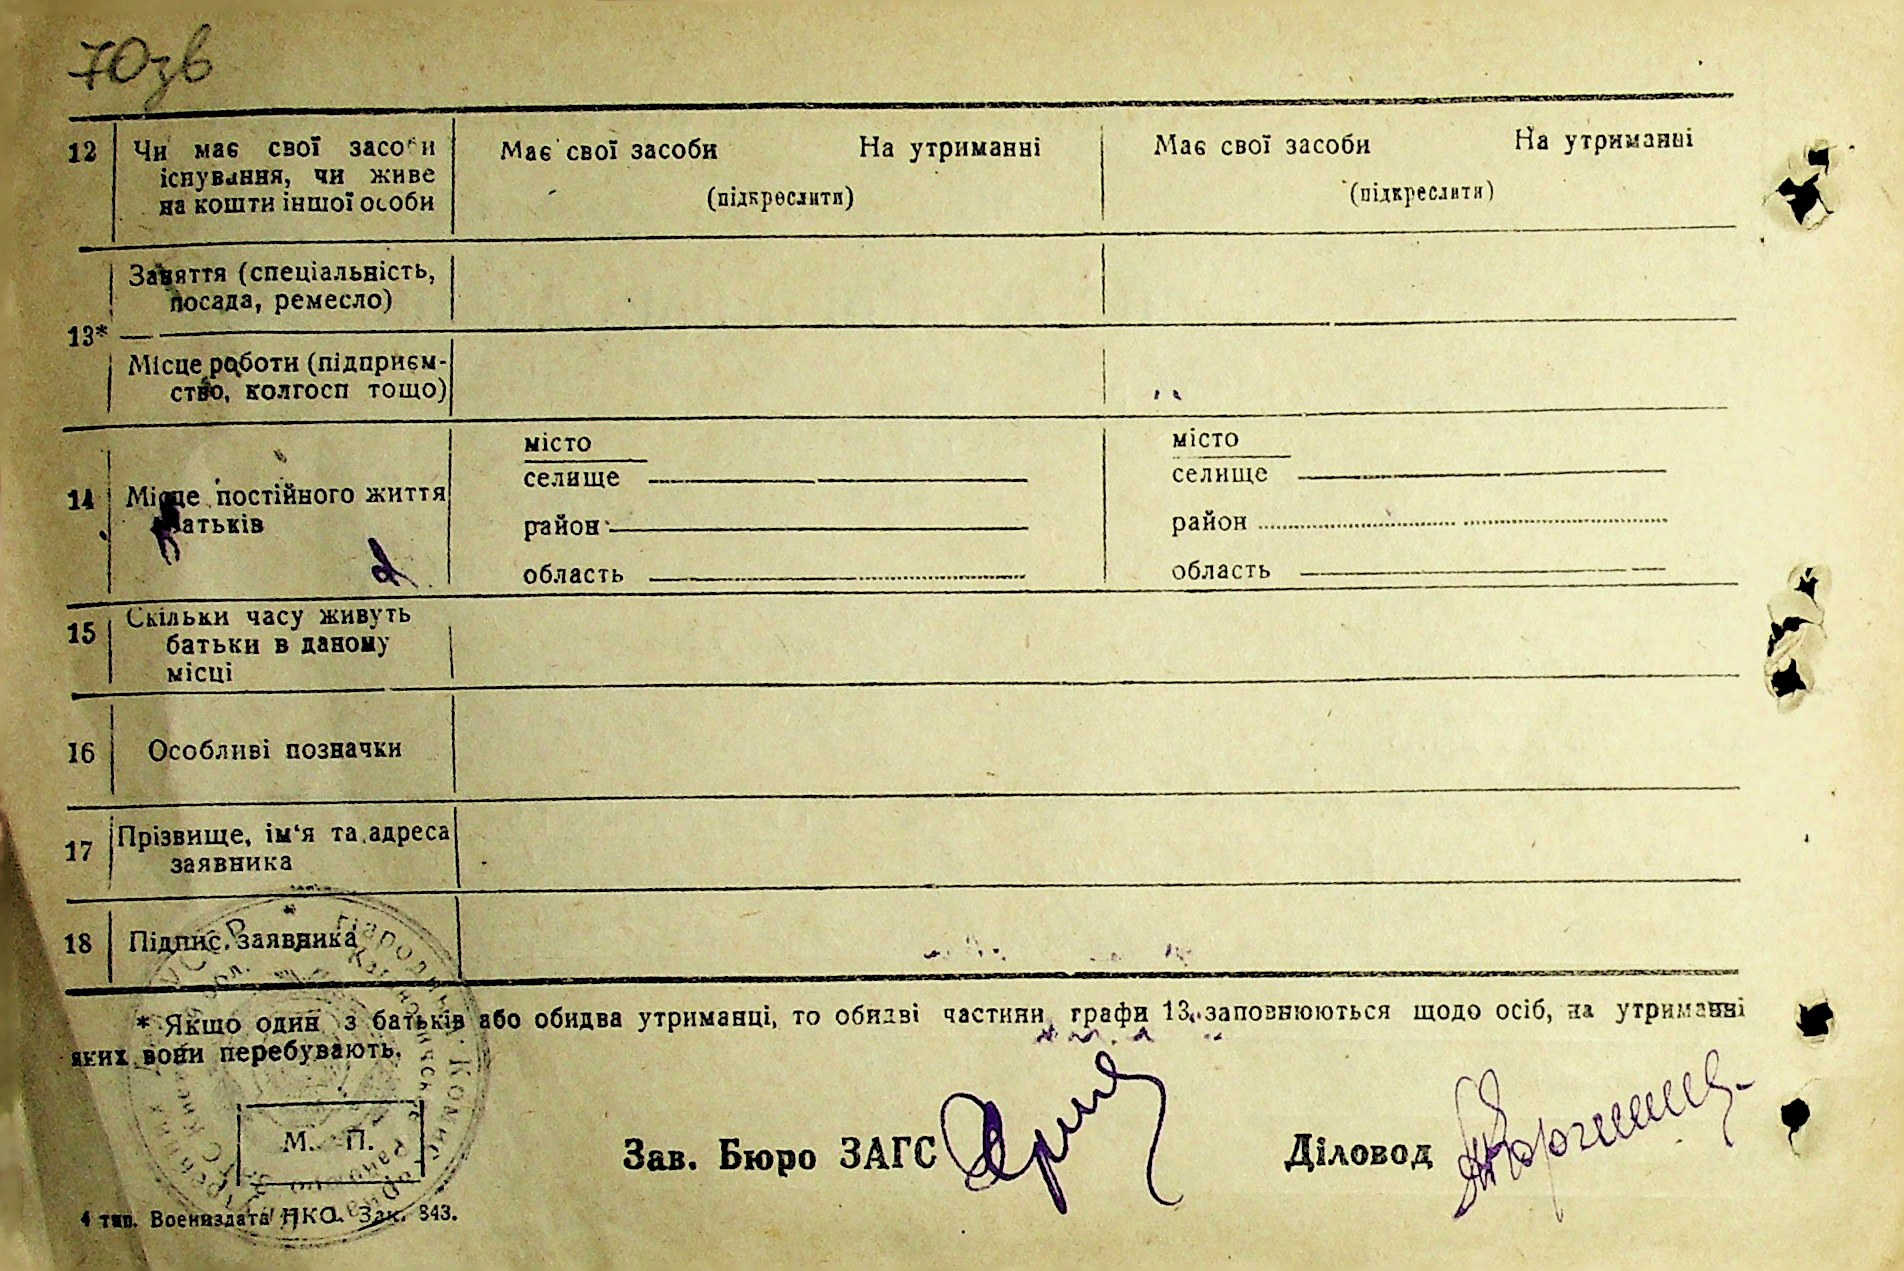 70зв
12 Чи має свої засоби Має свої засоби На утриманні Має свої засоби На утриманні
існування, чи живе (підкреслити) (підкреслити)
на кошти іншої особи
Заняття (спеціальність,
посада, ремесло)
13*
Місце роботи (підприєм-
ство, колгосп тощо)
місто місто
селище селище
14 Місце постійного життя
батьків
район район
область область
15 Скільки часу живуть
батьки в даному
місці
16 Особливі позначки
17 Прізвище, ім‘я та адреса
заявника
18 Підпис заявника
* Якщо один з батьків або обидва утриманці, то обидві частини графи 13 заповнюються щодо осіб, на утриманні
яких вони перебувають.
М. П.
Зав. Бюро ЗАГС Діловод
4 тип. Воениздата НКО. Зак. 843.
УССР Народный Комис